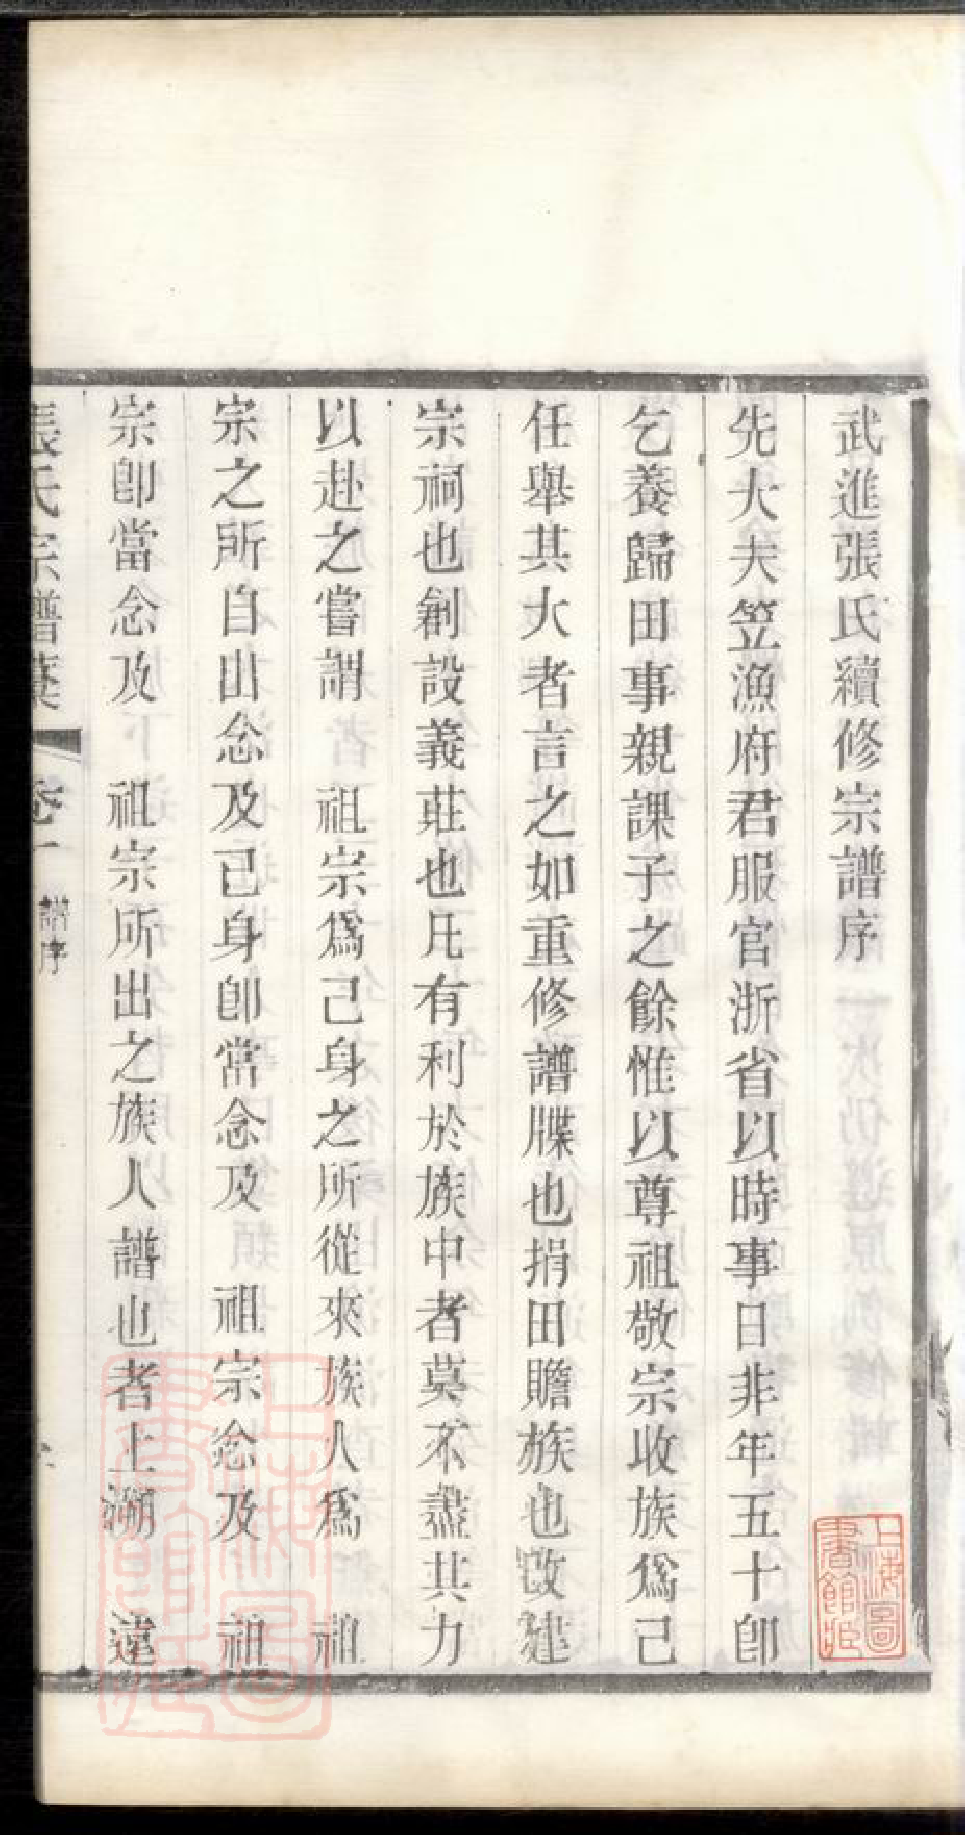 武進張氏續修宗譜序
先大夫笠漁府君服官浙省以時事日非年五十卽
乞養歸田事親課子之餘惟以尊祖敬宗收族爲己
任舉其大者言之如重修譜牒也捐田贍族也改建
宗祠也創設義莊也凡有利於族中者莫不盡其力
以赴之嘗謂　祖宗爲己身之所從來族人爲　祖
宗之所自出念及己身卽當念及　祖宗念及　祖
宗卽當念及　祖宗所出之族人譜也者上溯　遠
張氏宗譜 卷一 譜序
上海圖書館藏